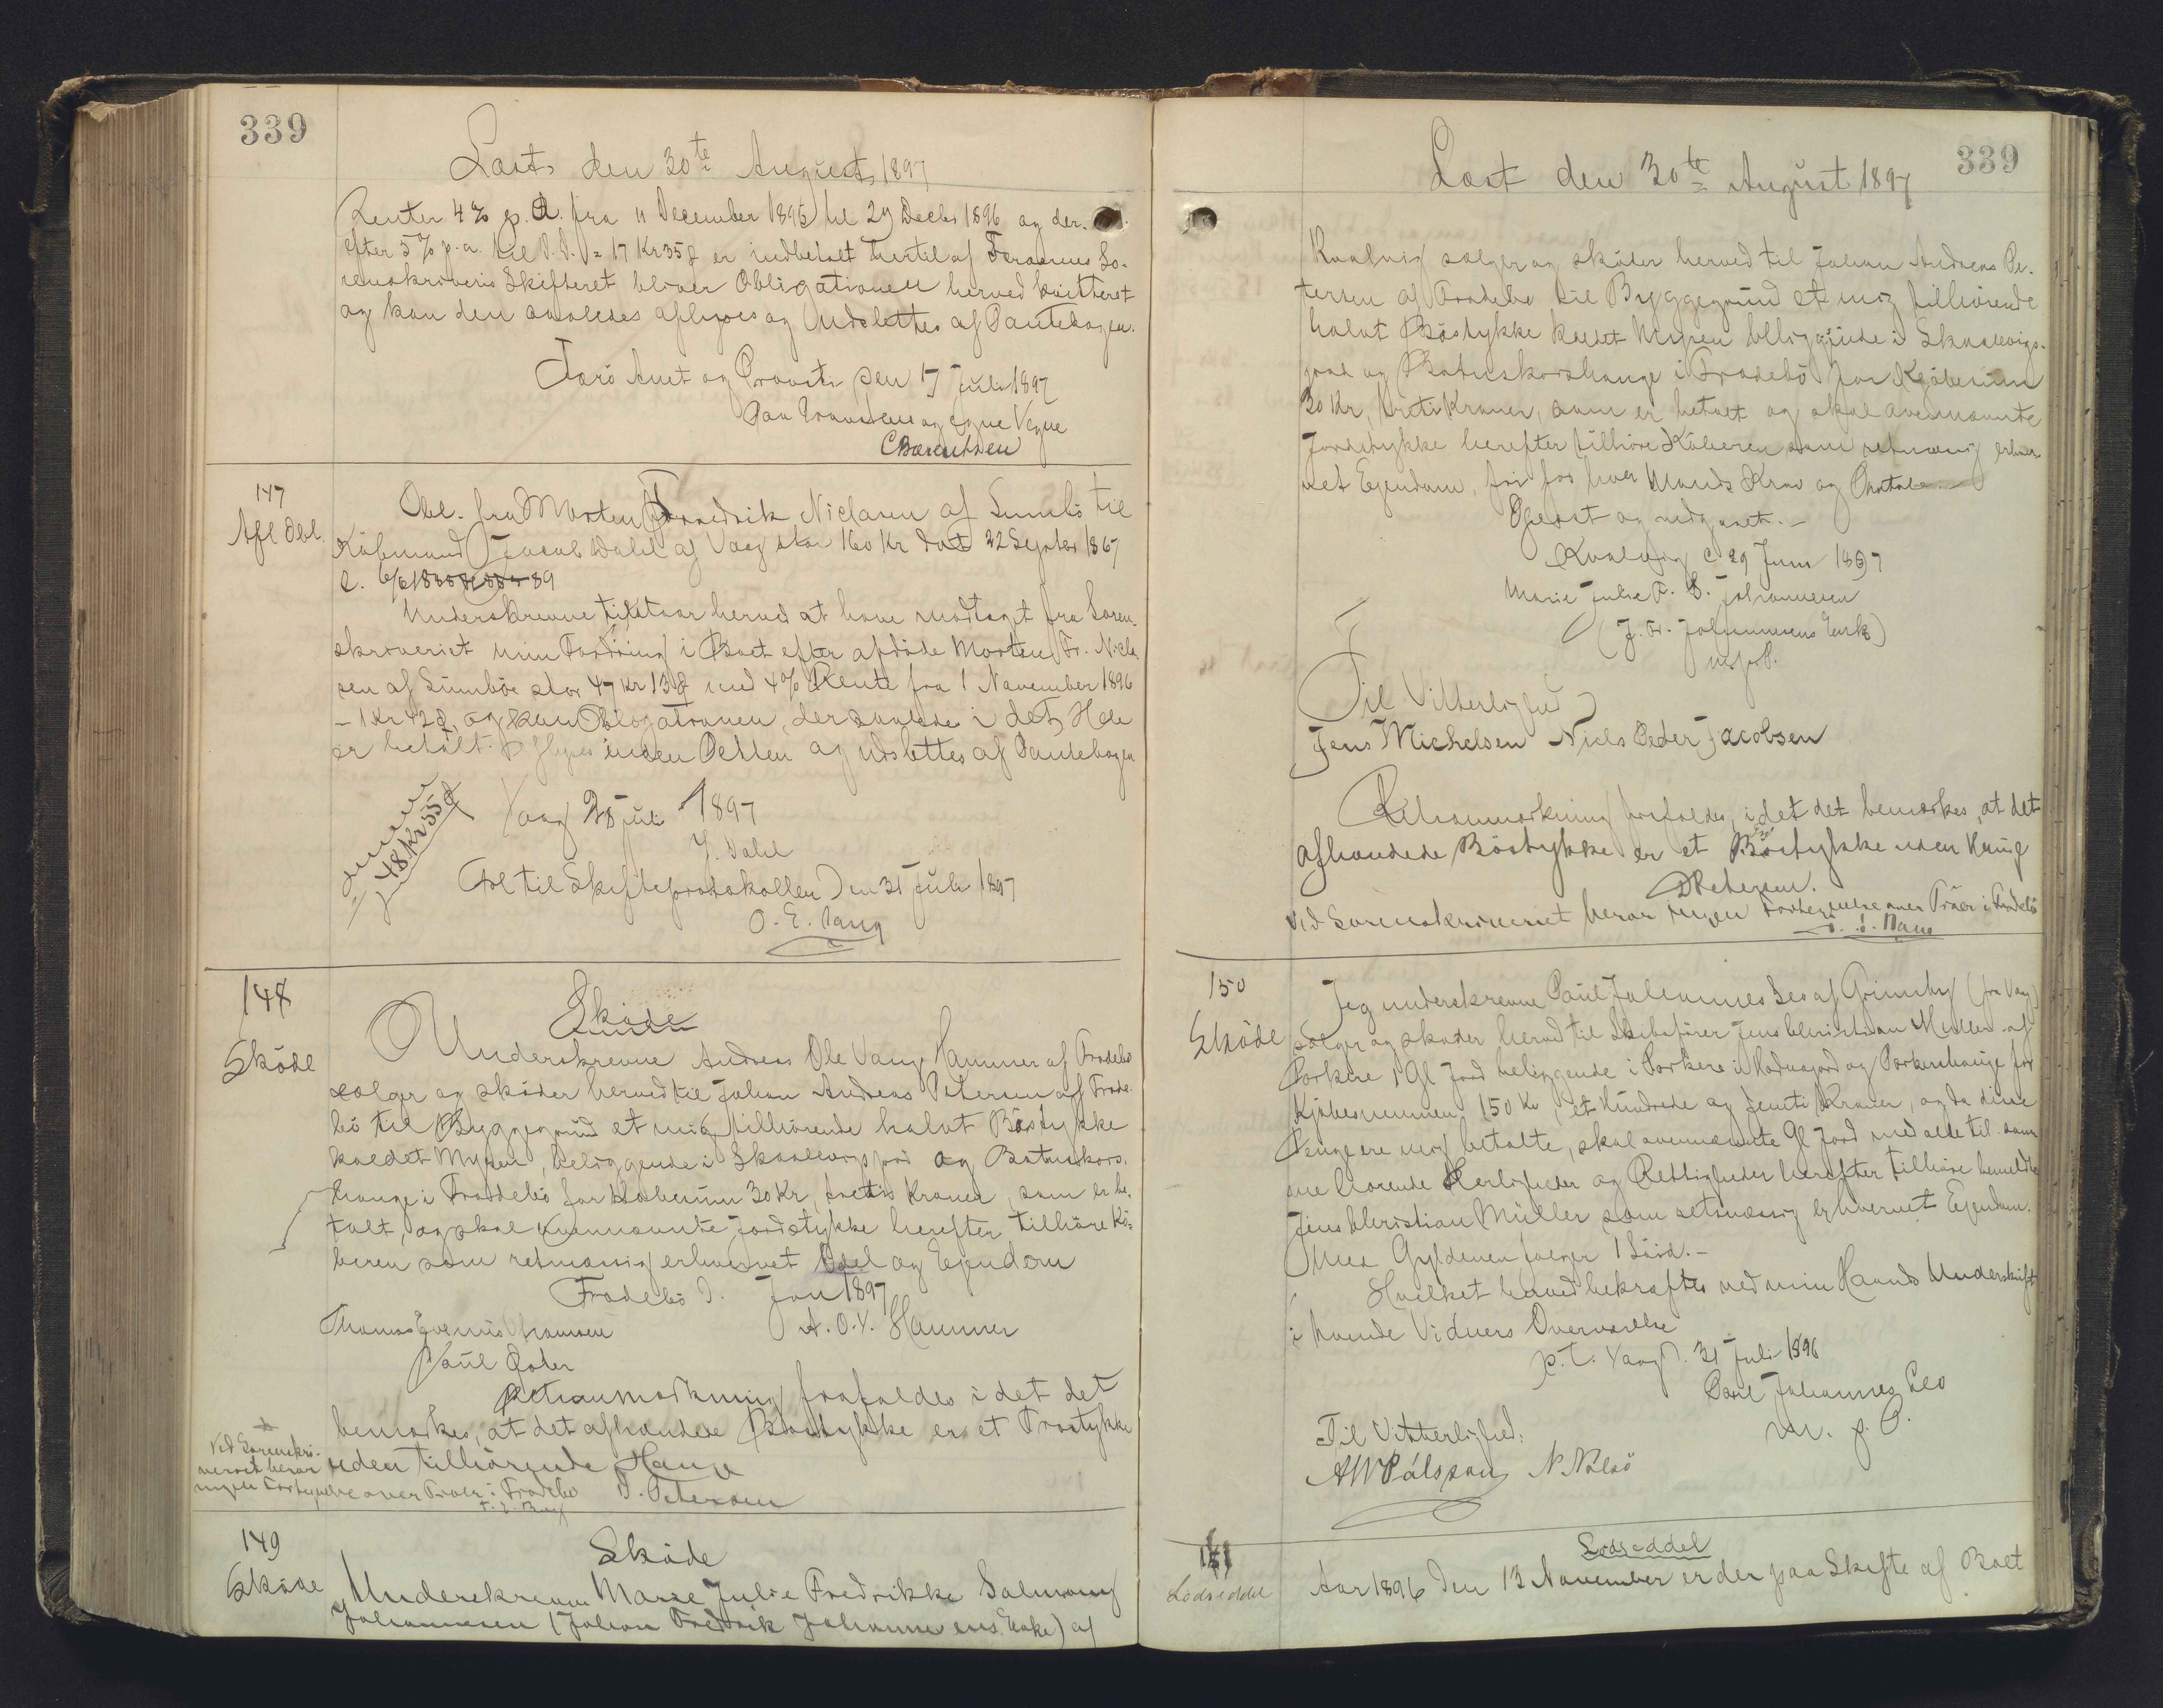 339
Læst den 30te August 1897
Renter 4% p. A. fra 11 December 1895 til 29 Decbr 1896 og der-
efter 5% p. a. til D. D. = 17 Kr 35 Ø er indbetalt hertil af Færøernes So-
renskriveris Skifteret bliver Obligationen herved kvitteret
og kan den saaledes aflyses og Udslettes af Pantebogen.
Færö Amt og Provsti den 17 Juli 1897
Paa Provstens og egne Vegne
C Bærentsen
147
Afl Obl.
Obl. fra Morten Fredrik Niclasen af Sumbö til
Köbmand Jacob Dahl af Vaag stor 160 Kr dat 22 Septbr 1867
l. 6/6 1888 89
Underskrevne tilstaar herved at have modtaget fra Soren-
skriveriet min Fordring i Boet efter afdöde Morten Fr. Nicla-
sen af Sumböe stor 47 Kr 13 Ø med 4% Rente fra 1 November 1896
- 1 Kr 42 Ø, og kan Obligationen, der saaledes i det Hele
er betalt aflyses inden Retten og udslettes af Pantebogen
= Summen
48 Kr 55 Ø
Vaag 28 Juli 1897
J. Dahl
Afl til Skifteprotokollen Den 31 Juli 1897
O. E. Vang
148
Sköde
Sköde
Underskrevne Andreas Ole Vang Hammer af Frodebö
sælger og sköder herved til Johan Andreas Petersen af Frode-
bö til Byggegrund et mig tilhörende halvt Böstykke
kaldet Myren, beliggende i Skaalevigsjord og Botnskors-
hauge i Froddebö for Köbesum 30 Kr, tretti Kroner, som er be-
talt, og skal ovennævnte Jordstykke herefter tilhöre Kö-
beren som retmæssig erhvervet Odel og Ejendom
Frodebö D. Juni 1897
Thomas Evenius Thomsen A. O. V. Hammer
Poul Joter
Retranmærkning frafaldes i det det
bemærkes, at det afhændede Böstykke er et Trøstykke
uden tilhörende Hauge
D. Petersen
Ved Sorenskri-
veriet beror
ingen Fortegnelse over Tröer i Frodebö
149
Sköde
Sköde
Underskrevne Marie Julie Fredrikke Salmony
Johannesen (Johan Fredrik Johannesens Enke) af
339
Læst den 30te August 1897
Kvalvig sælger og sköder herved til Johan Andreas Pe-
tersen af Frodebö til Byggegrund et mig tilhörende
halvt Böstykke kaldet Myren belliggende i Skaalevigs-
jord og Botnskorshauge i Frodebö for Kjöbesum
30 Kr, tretti Kroner, som er betalt og skal ovennævnte
Jordstykke herefter tilhöre Köberen som retmæssig erhver-
vet Ejendom, fri for hver Mands Krav og Paatale.
Oplæst og vedgaaet.-
Kvalvig d 29 Juni 1897
Marie Julie F. S. Johannesen
(J. Fr. Johannesens Enke)
m. f. P.
Til Vitterlighed
Jens Michelsen Niels Peder Jacobsen
Retranmærkning frafaldes, i det det bemærkes, at det
afhændede Böstykke er et Böstykke uden Hauge
D Petersen.
Ved Sorenskriveriet beror ingen Fortegnelse over Tröer i Frodebö
150
Sköde
Jeg underskrevne Paul Johannes Leo af Grimsby (fra Vaag)
Sælger og sköder herved til Skibsförer Jens Christian Müller af
Porkere 1 Gl Jord beliggende i Porkere i Hovnsjord og Porkerehauge for
Kjöbesummen 150 Kr, et hundrede og femti Kroner, og da disse
Penge ere mig betalte, skal ovennævnte Gl Jord med alle til sam-
me hörende Herligheder og Rettigheder herefter tilhöre bemeldte
Jens Christian Müller som retmæssig erhvervet Ejendom.
Med Gyldenen fölger 1 Lödd.-
Hvilket herved bekræftes ved min Haands Underskrift
i tvende Vidners Overværelse
p. t. Vaag D. 31 Juli 1896
Paul Johannes Leo
m. f. P.
Til Vitterlighed:
A W Pálsson N. Nolsö
151
Lodseddel
Lodseddel
Aar 1896 den 13 November er der paa Skifte af Boet